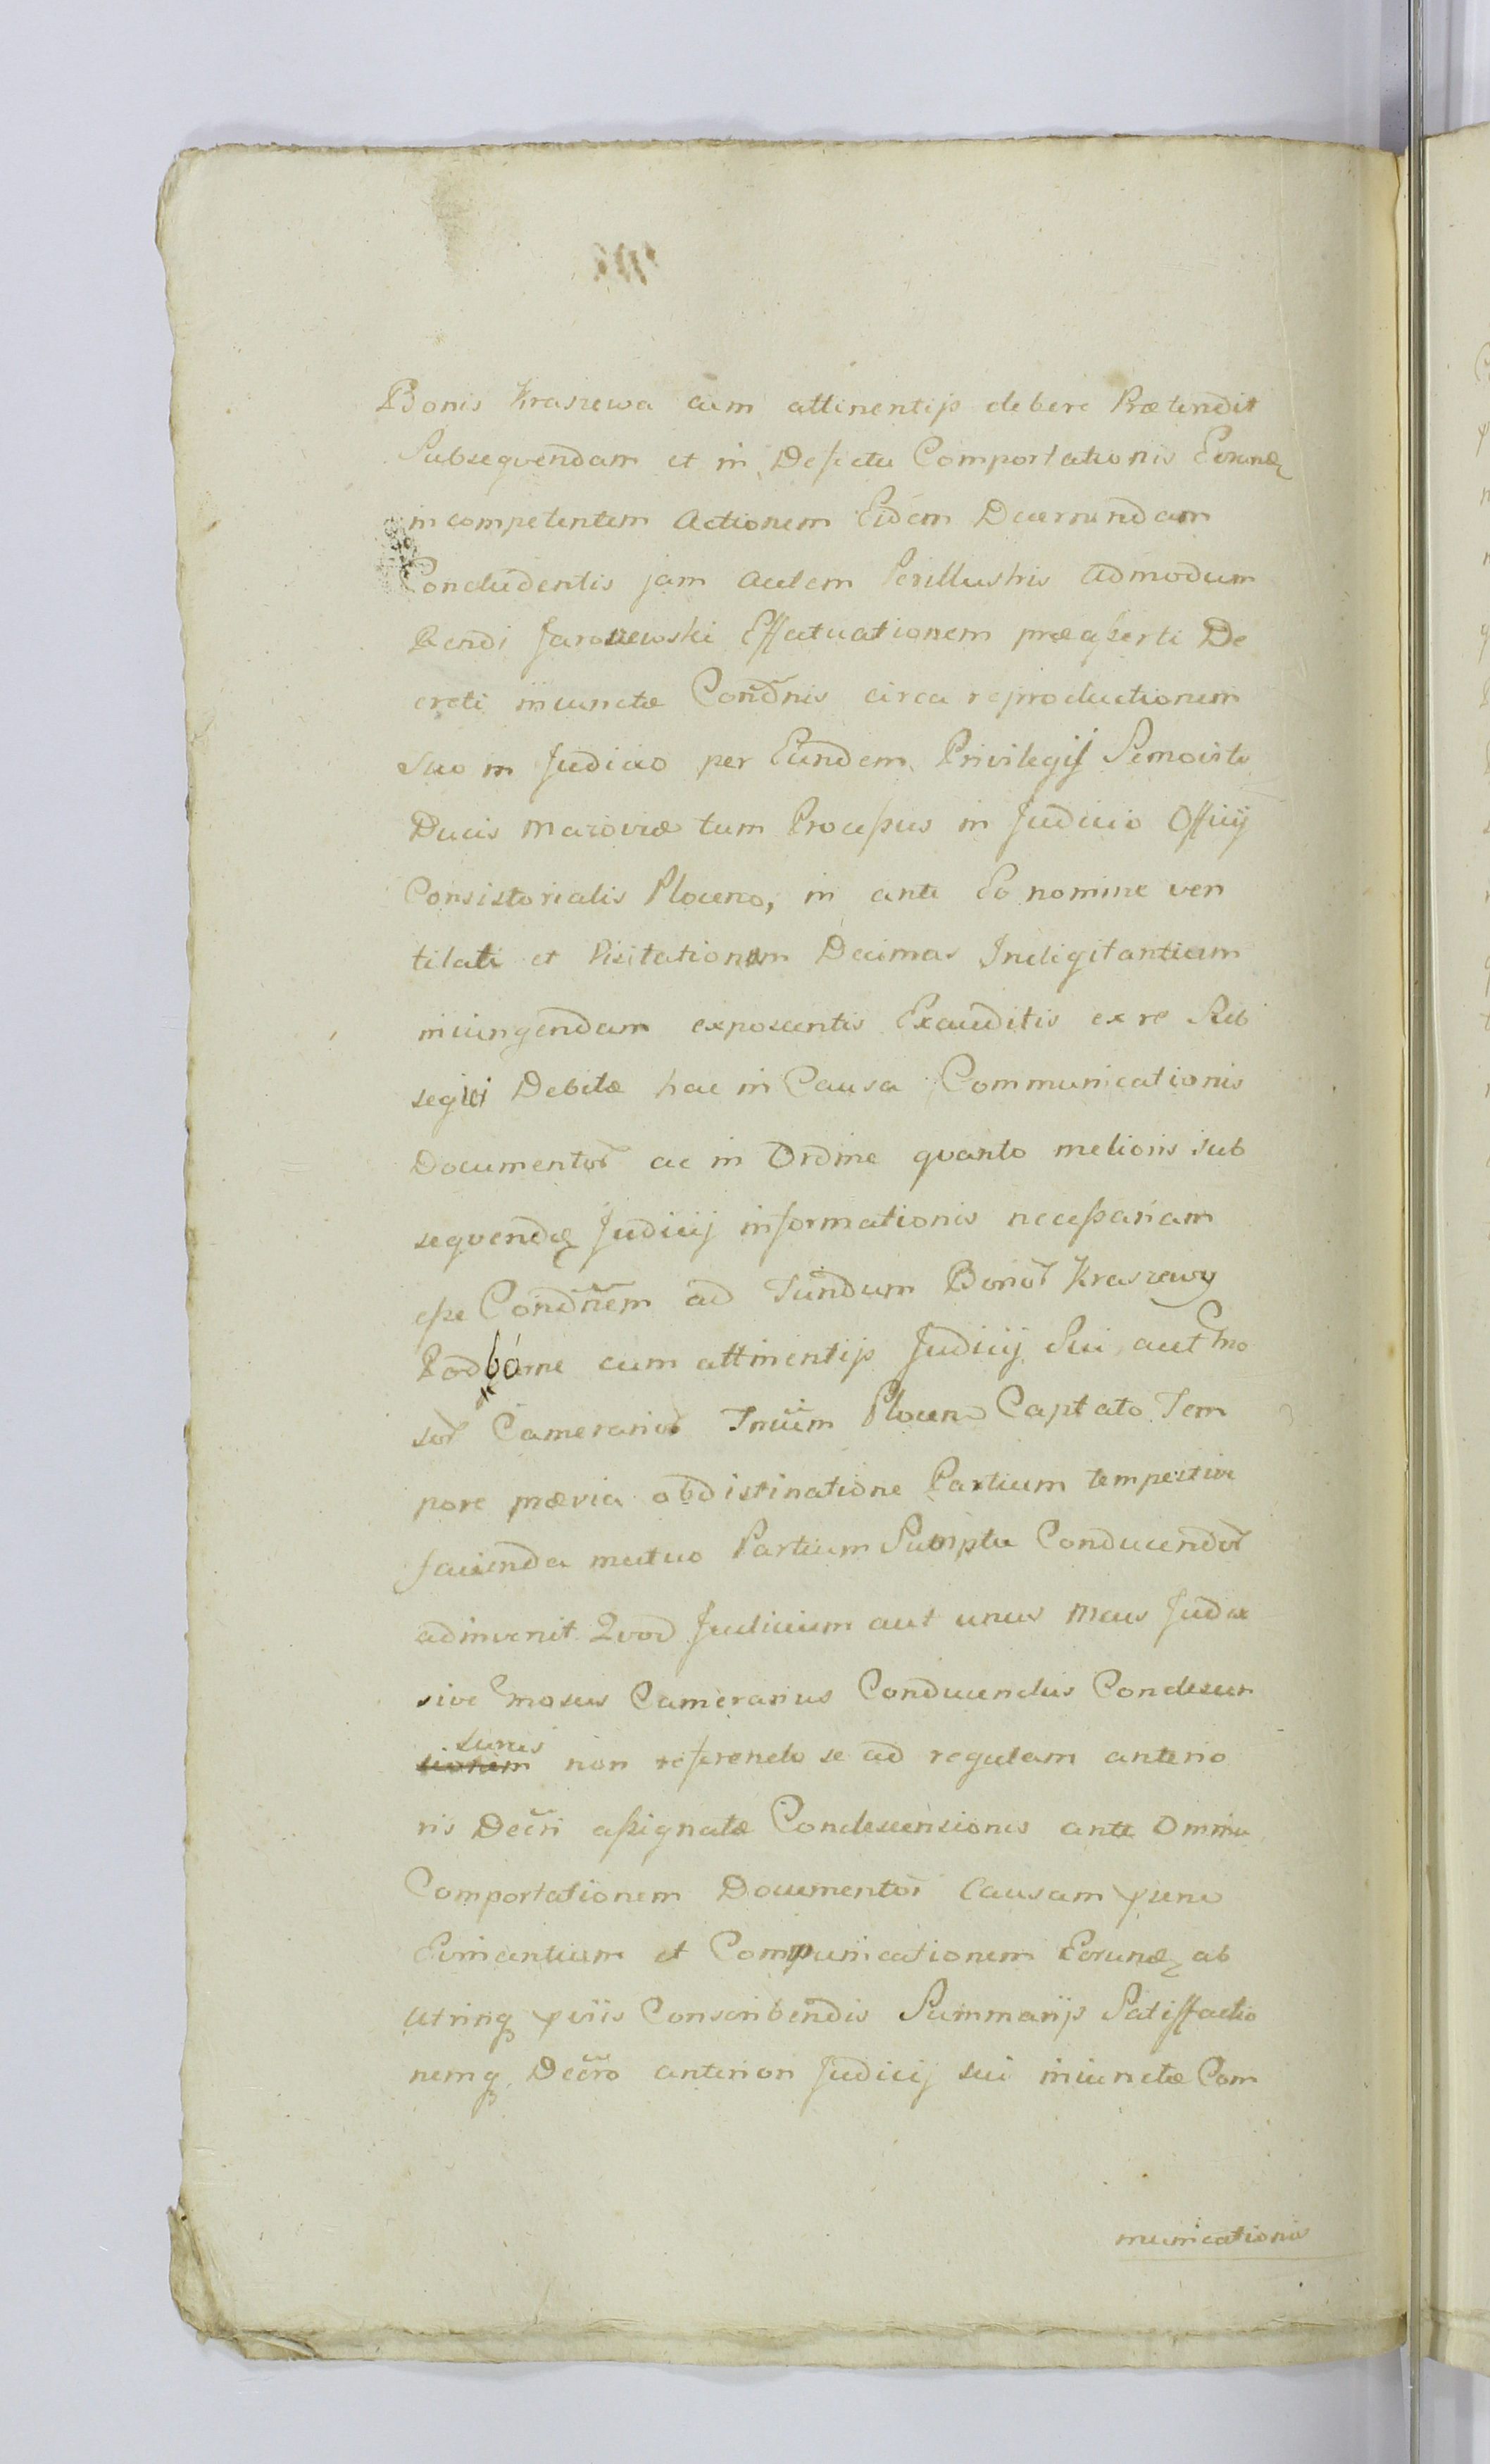 Bonis Kraszewa cum attinentijs debere Prætendit
Subsequendam et in Defectu Comportationis Eorund
in competentem Actionem Eidem Decernendam
Concludentis jam autem Perillustris Admodum
Rendi Jaroszewski Effatuationem præasserti De
creti iniunctæ Condnis circa reproductionem
Suo in Judicio per Eundem Privilegij Semovito
Ducis Mazoviæ tum Processus in Judicio Officij
Consistorialis Plocen, in ante Eo nomine ven
tilati et Visitationem Decimas Indigitantium
iniungendam exposcentis Exauditis ex re Sub
sequi Debitæ hac in Causa Communicationis
Documentor ac in Ordine quanto melioris sub
sequendæ Judicij informationis necessariam
esse Condnem ad Fundum Bonor Kraszewy
Podborne cum attinentijs Judicij Sui, aut Cmo
sor Camerarior Trium Plocen Captato Tem
pore prævia obdistinatione Partium tempestive
facienda mutuo Partium Sumptu Conducendor
adinvenit Quod Judicium aut unus meus Judex
sive Cmosus Camerarius Conducendus Condescen
surus
sionem non referendo se ad regulam anterio
ris Decri assignatæ Condescensionis ante Omnia
Comportationem Documentor Causam
Evincentium et Communicationem Eorund ab
utrinq Conscribendis Summarijs Satisfactio
nemq Decro anteriori Judicij sui iniunctæ Com
municationis